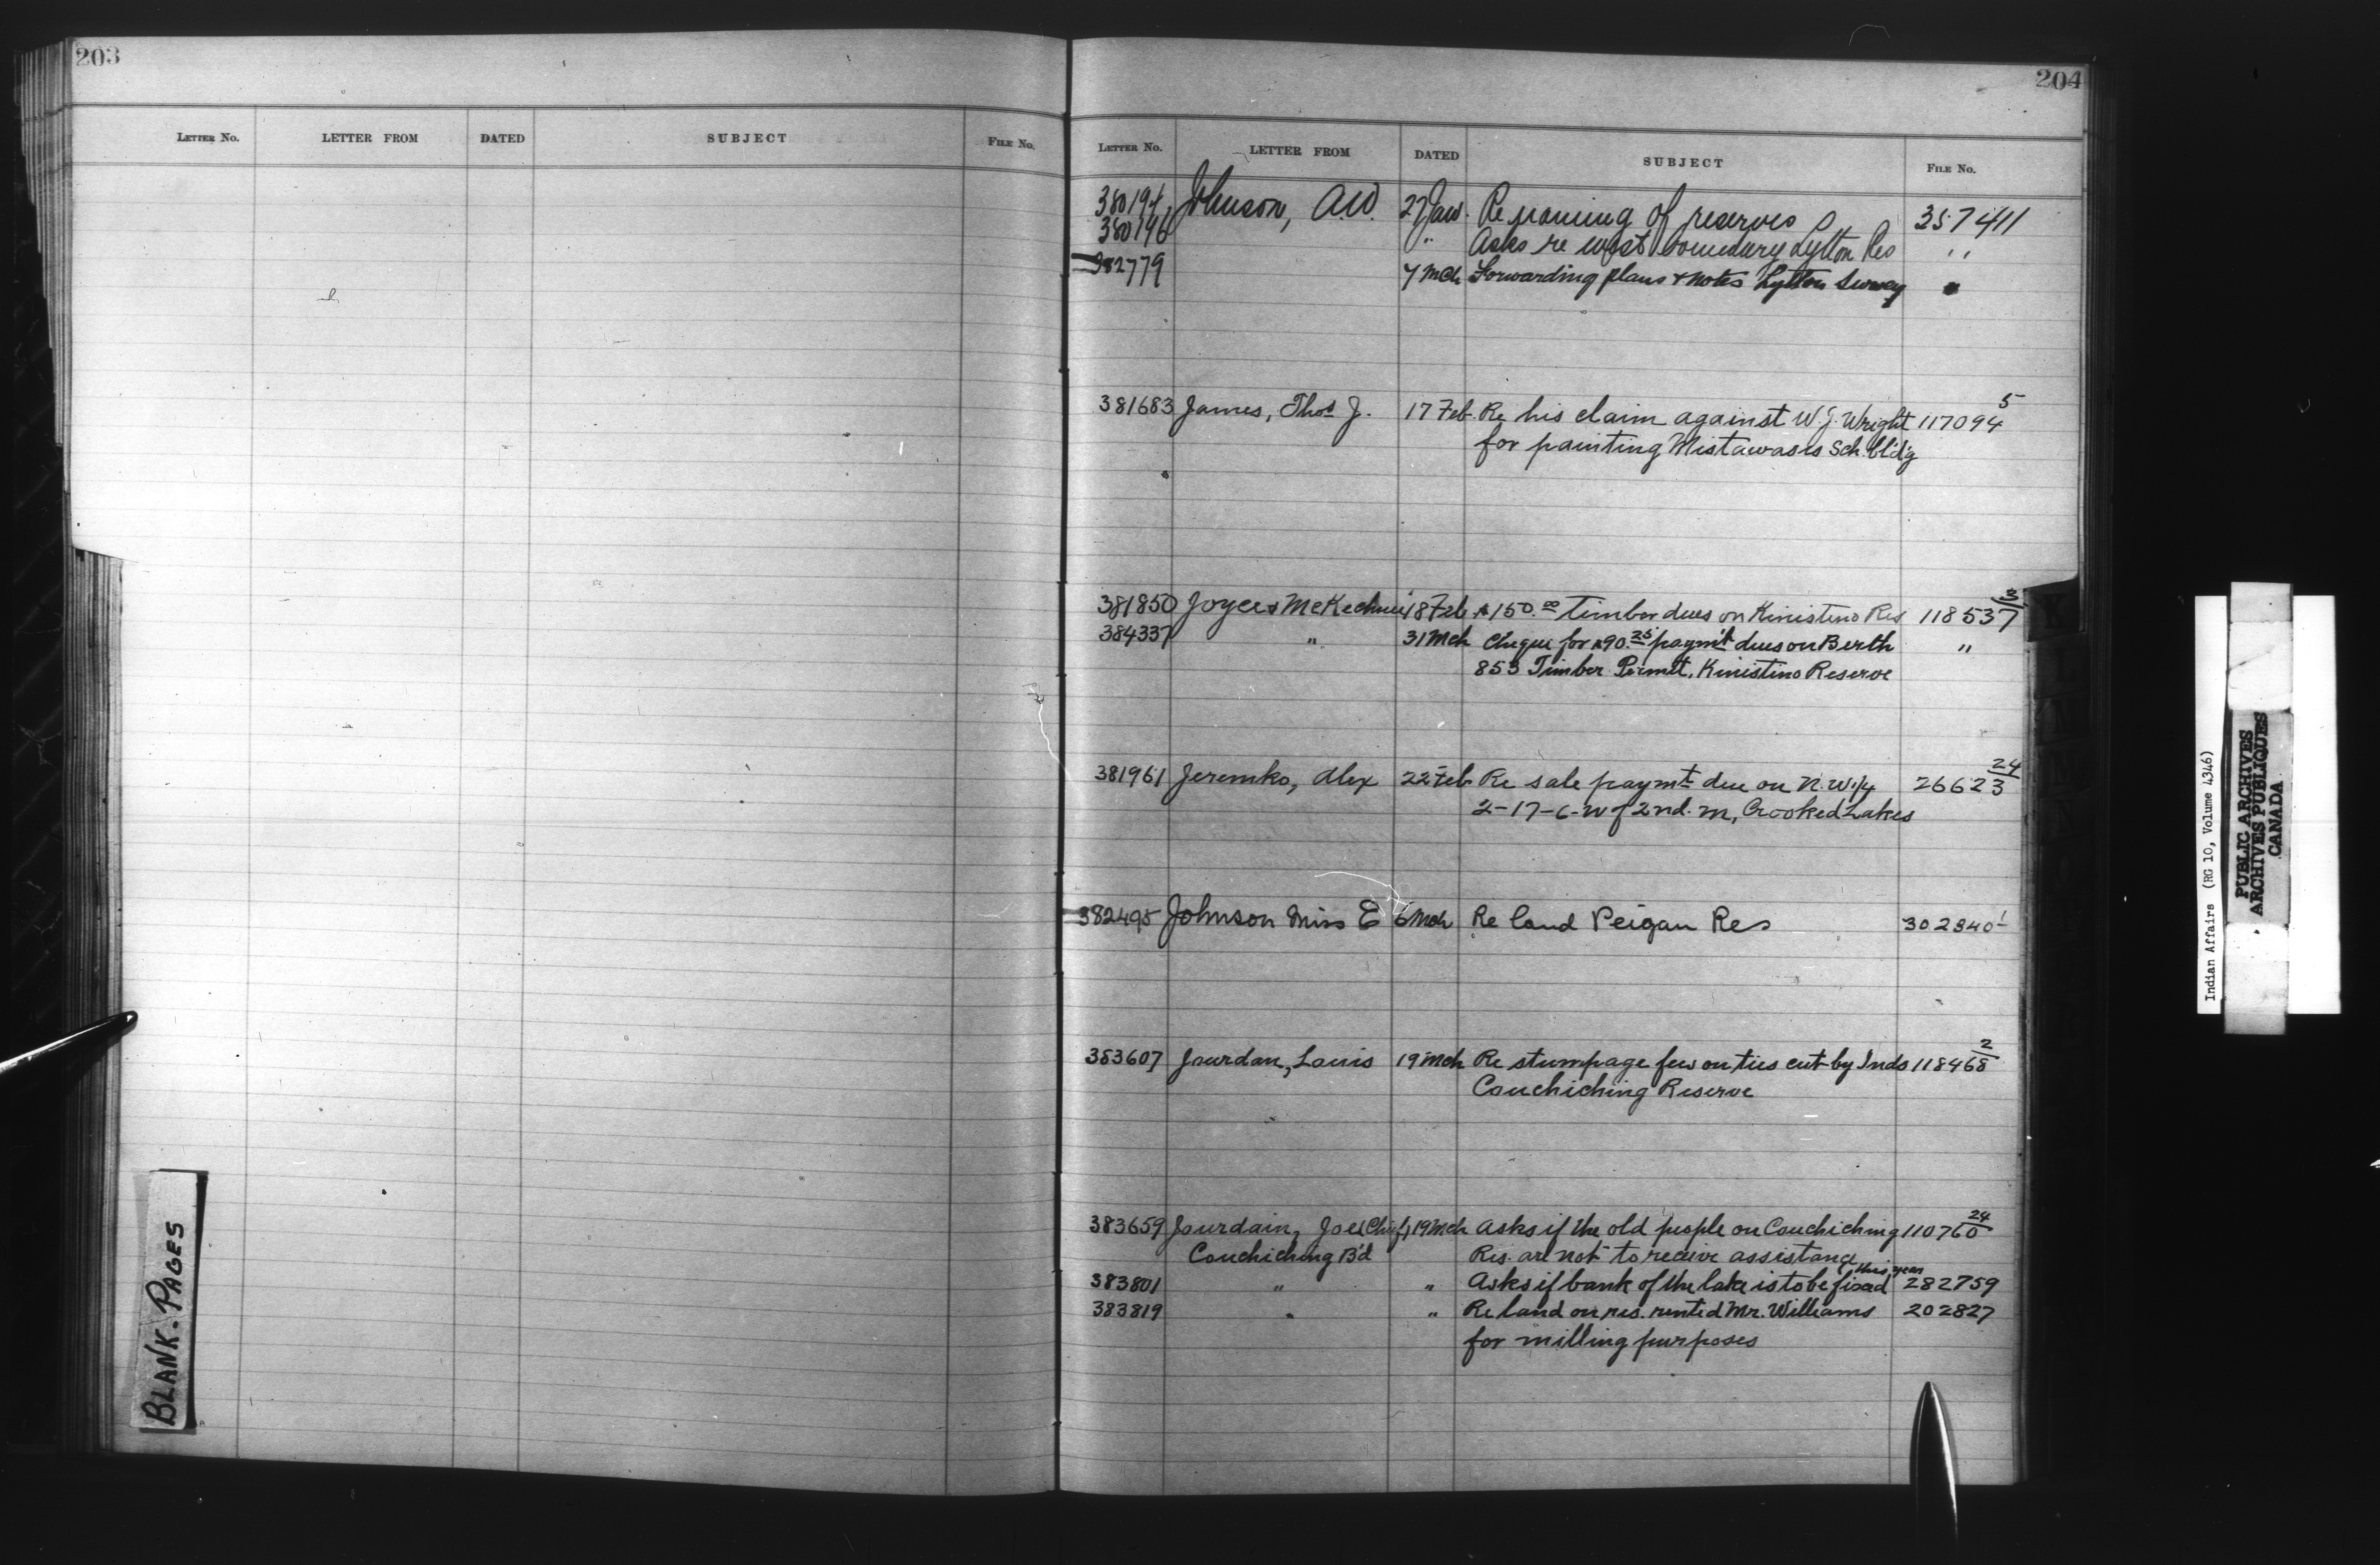 203
LETTER NO. LETTER FROM DATED SUBJECT FILE NO.
BLANK-PAGES
204
LETTER NO. LETTER FROM DATED SUBJECT FILE NO.
380194 Johnson, A.W. 27 Jan. Re naming of reserves 357411
380196 " Asks re west boundary Lytton Res "
382779 7 Mch Forwarding plans & notes Lytton Survey "
381683 James, Thos J. 17 Feb. Re his claim against W.J. Wright 117094 5
for painting Mistawasis Sch. bld'g
381850 Joyce & McKechnie 18 Feb $150.00 Timber dues on Kinistino Res 118537
384337 " 31 Mch Cheque for $90.25 paym't dues on Berth "
853 Timber Permit, Kinistino Reserve
381961 Jeremko, Alex 22 Feb Re sale paymt due on N.W. 1/4 26623 24
2-17-6-W of 2nd. M, Crooked Lakes
382495 Johnson Miss E 6 Mch Re land Peigan Res 302840 1
383607 Jourdan, Louis 19 Mch Re stumpage few on ties cut by Inds 118468 2
Couchiching Reserve
383659 Jourdain, Joe (Chief) 19 Mch Asks if the old people on Couchiching 110760 24
Couchiching B'd Res. are not to receive assistance
this year
383801 " " Asks if bank of the lake is to be fixed 282759
383819 " " Re land on res. rented Mr. Williams 202827
for milling purposes
Indian Affairs (RG 10, Volume 4346)
PUBLIC ARCHIVES
ARCHIVES PUBLIQUES
CANADA